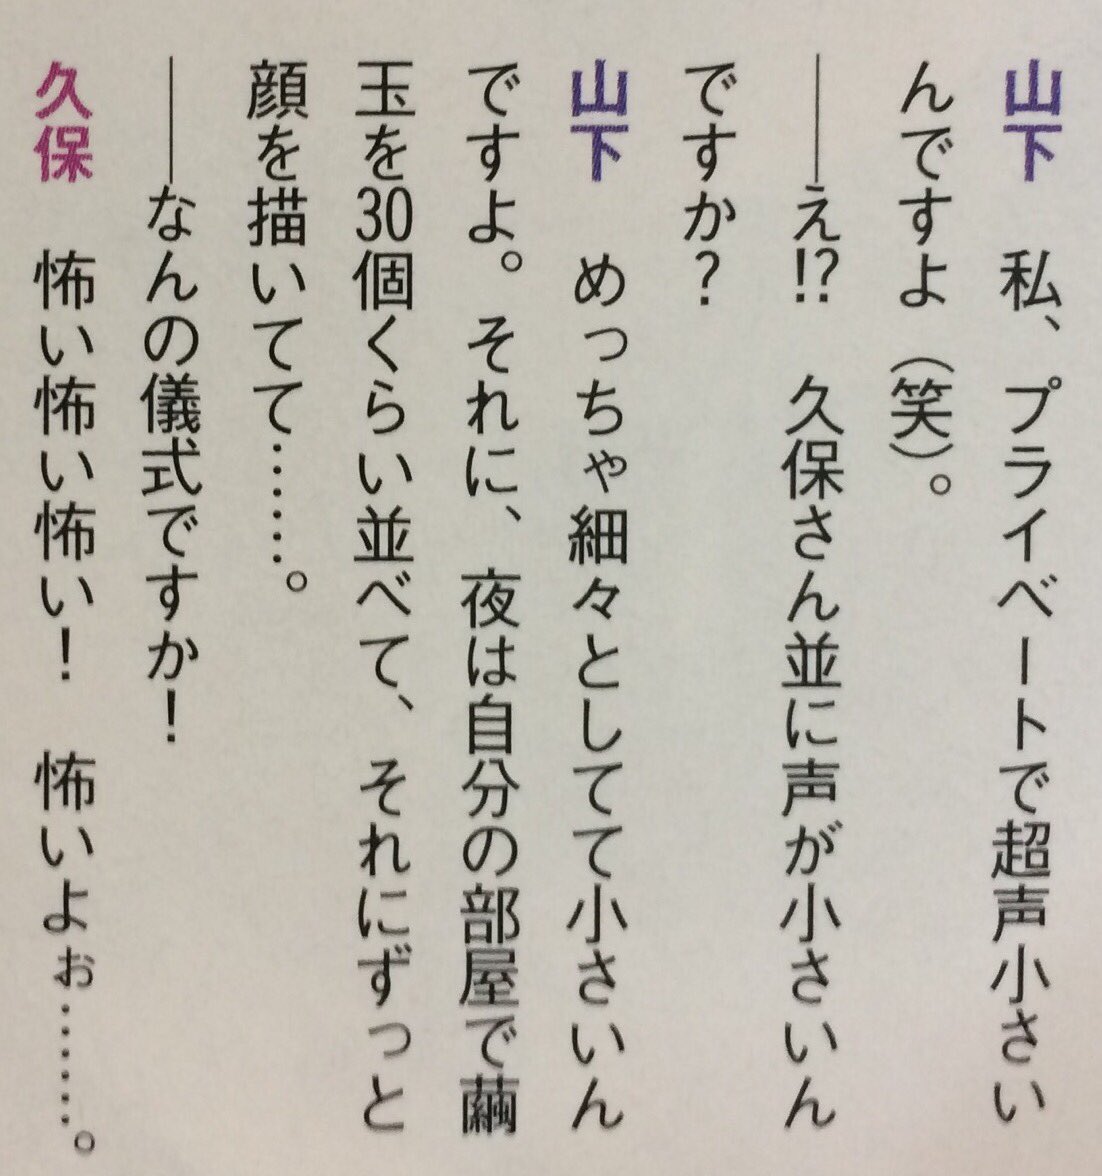 山下　私、プライベートで超声小さい
んですよ（笑）。
――え!?　久保さん並に声が小さいん
ですか？
山下　めっちゃ細々としてて小さいん
ですよ。それに、夜は自分の部屋で繭
玉を30個くらい並べて、それにずっと
顔を描いてて……。
――なんの儀式ですか！
久保　怖い怖い怖い！　怖いよぉ……。